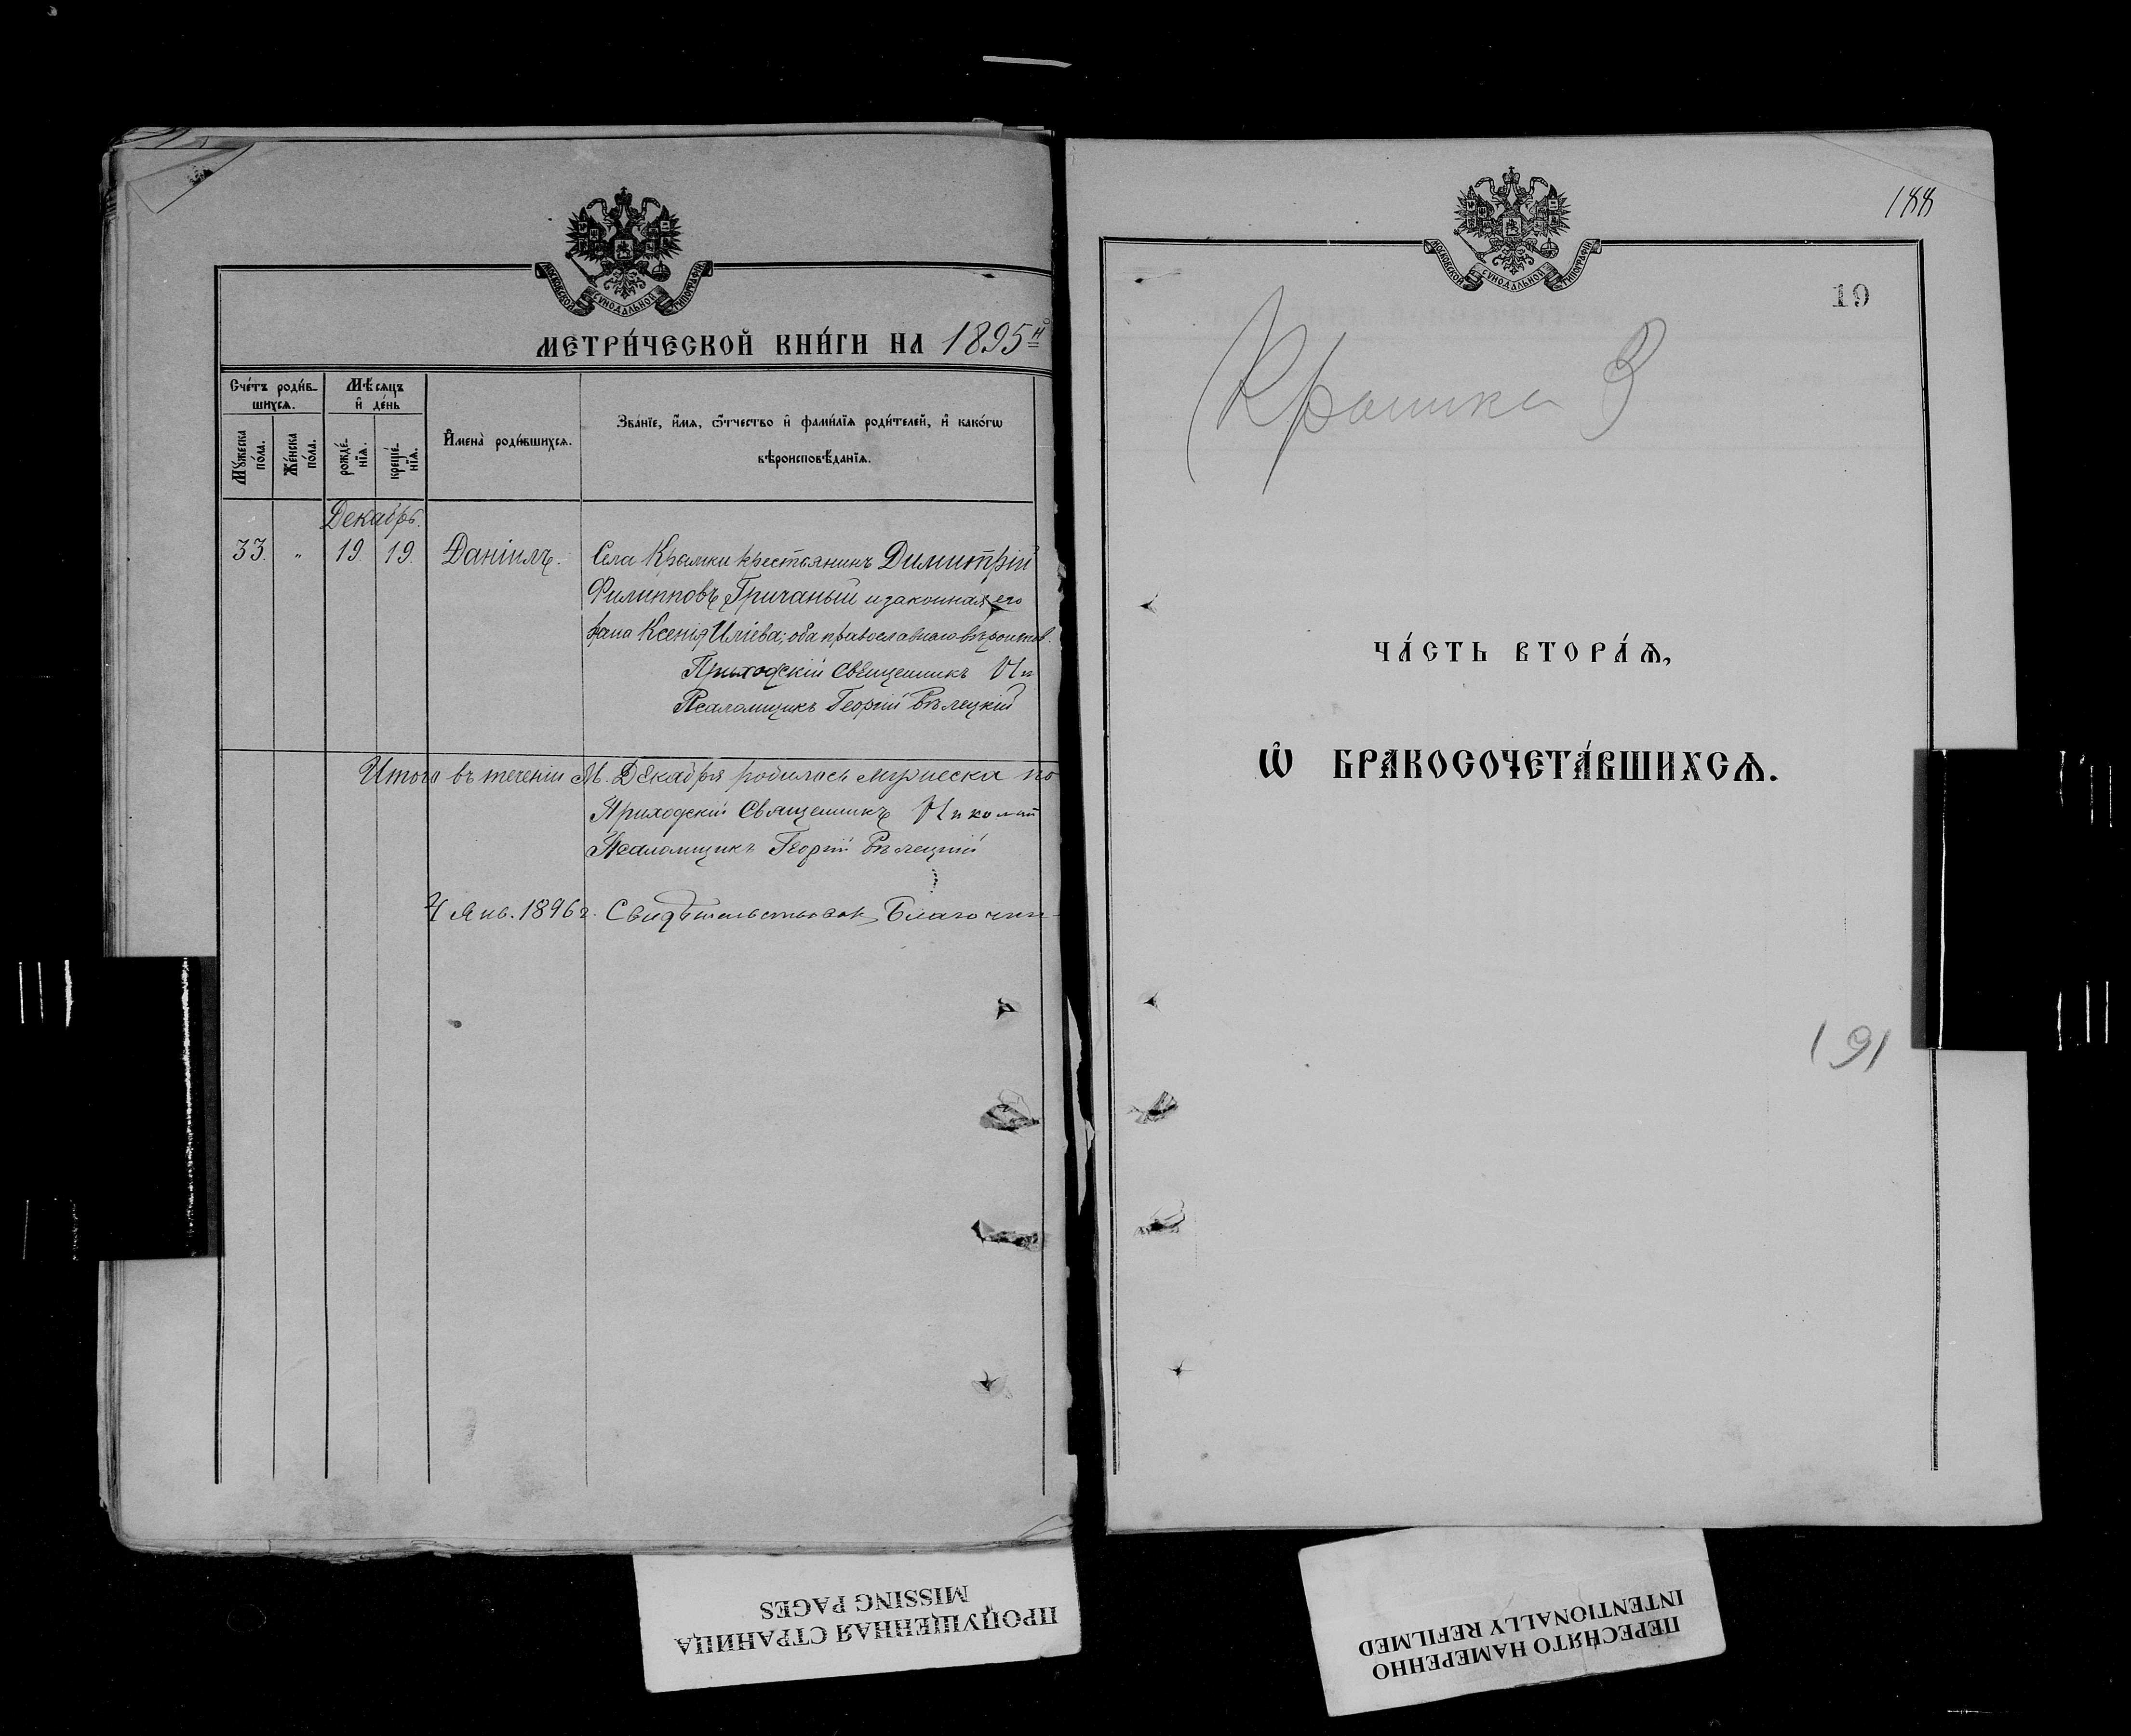 МОСКОВСКОЙ СѴНОДАЛЬНОЙ ТИПОГРАФІИ
МЕТРИ́ЧЕСКОЙ КНИ́ГИ НА 1895й
Сче́тъ роди́в-
шихсѧ.
Мѣ́сѧцъ
и҆ де́нь
Мꙋ́жеска
по́ла.
Же́нска
по́ла.
рожде́-
нїѧ.
креще́-
нїѧ.
И҆мена̀ роди́вшихсѧ.
Зва́нїе, и҆́мѧ, ѻ҆́тчество и҆ фами́лїѧ роди́телей, и҆ како́гѡ
вѣроисповѣ́данїѧ.
Декабрь.
33. " 19. 19. Даніилъ.
Села Крымки крестьянинъ Димитрій
Филипповъ Гричаный и законная его
жена Ксенія Иліева; оба православнаго вѣроиспов.
Приходскій Священникъ Ни
Псаломщикъ Георгій Вѣлецкій
Итого въ теченіи М. Декабря родилось мужеска по
Приходскій Священникъ Николай
Псаломщикъ Георгій Вѣлецкій
4 Янв. 1896 г. Свидѣтельствовалъ Благочин-
188
МОСКОВСКОЙ СѴНОДАЛЬНОЙ ТИПОГРАФІИ
19
ЧА́СТЬ ВТОРА́Ѧ,
Ѡ҆ БРАКОСОЧЕТА́ВШИХСѦ.
191
ПРОПУЩЕННАЯ СТРАНИЦА
MISSING PAGES
ПЕРЕСНЯТО НАМЕРЕННО
INTENTIONALLY REFILMED